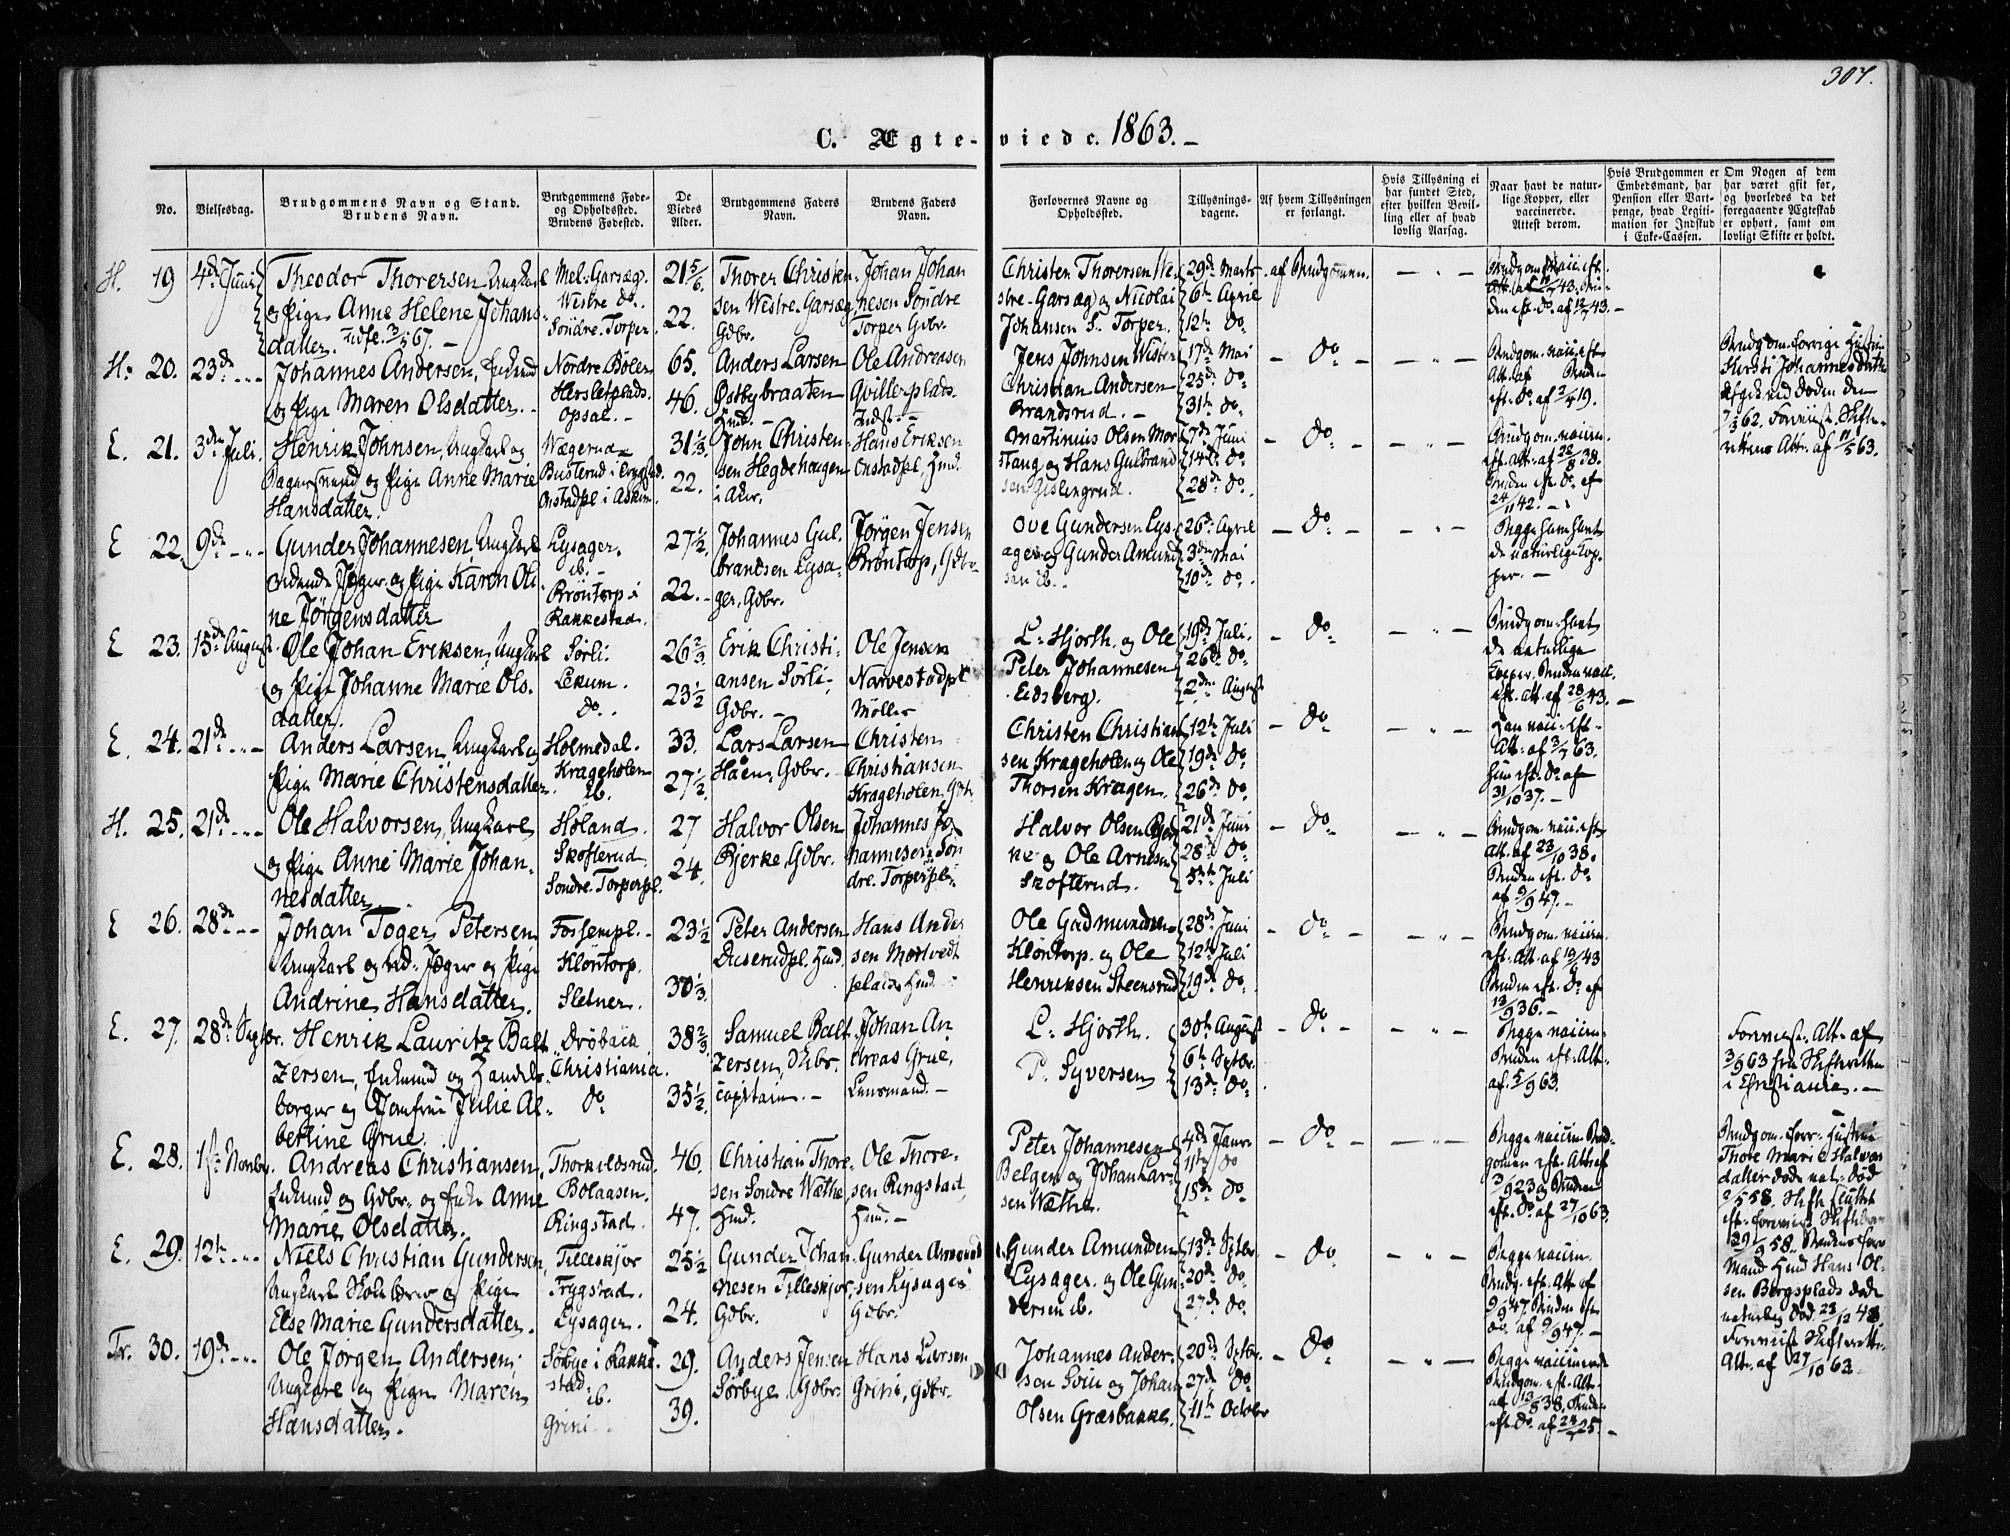 307.
C. Ægte-viede. 1863.-
No.
Vielsesdag.
Brudgommens Navn og Stand.
Brudens Navn.
Brudgommens Føde-
og Opholdssted.
Brudens Fødested.
De
Viedes
Alder.
Brudgommens Faders
Navn.
Brudens Faders
Navn.
Forlovernes Navne og
Opholdssted.
Tillysnings-
dagene.
Af hvem Tillysningen
er forlangt.
Hvis Tillysning ei
har fundet Sted,
efter hvilken Bevil-
ling eller af hvad
lovlig Aarsag.
Naar havt de natur-
lige Kopper, eller
vaccinerede.
Attest derom.
Hvis Brudgommen er
Embedsmand, har
Pension eller Vart-
penge, hvad Legiti-
mation for Indskud
i Enke-Cassen.
Om Nogen af dem
har været gift før,
og hvorledes da det
foregaaende Ægteskab
er ophørt, samt om
lovligt Skifte er holdt.
H. 19 4de Juni
Theodor Thorersen, Ungkarl
og Pige Anne Helene Johans-
datter. udfl. 3/5 67.
Mel. Garsæg.
Westre do.
Søndre Torper.
21 5/6
22.
Thorer Christen-
sen Westre Garsæg
Gdbr.
Johan Johan
nesen Søndre
Torper Gdbr.
Christen Thorersen We-
stre Garsæg og Nicolai
Johansen S. Torper.
29de Marts
6te April
12te do
af Brudgommen.
H. 20. 23de
Johannes Andersen, Enkemd
og Pige Maren Olsdatter.
Nordre Bøler
Hersletplads.
Opsal.
65.
46.
Anders Larsen
Østbybraaten
Hmd.
Ole Andreasen
Gvillerplads.
Indst.
Jens Johnsen Wister
Christian Andersen
Brandsrud.
17de Mai
25de do
31te do
do
Brudgom. forrige Hustru
Kirsti Johannesdatter
afgik ved Døden den
7/3 62. Foreviist Skifte-
rettens Att. af 11/5 63.
E. 21. 3die Juli.
Henrik Johnsen, Ungkarl og
Bagersvend og Pige Anne Marie
Hansdatter.
Wægerud
Busterud i Trygstad.
Onstadpl i Askim.
31 1/3.
22.
John Christen-
sen Hegdehaugen
i Aker.
Hans Eriksen
Onstadpl. Hmd.
Martinius Olsen Mor-
stang og Hans Gulbrand
sen Gislingrud.
7de Juni
14de do
28de do
do
E 22. 9de
Gunder Johannesen, Ungkarl
ridende Jæger og Pige Karen Oli-
ne Jørgensdatter
Lysager.
ib.
Brøntorp i
Rakkestad.
27 1/2.
22.
Johannes Gul-
brandsen Lysa-
ger, Gdbr.
Jørgen Jensen
Brøntorp, Gdbr.
Ove Gundersen Lys-
ager og Gunder Amund
sen ib.
26de April
3die Mai
10de do
do
Begge have havt
de naturlige Kop-
per.
E 23. 15de August.
Ole Johan Eriksen, Ungkarl
og Pige Johanne Marie Ols-
datter.
Sørli.
Lekum.
do.
26 2/3
23 1/2
Erik Christi-
ansen Sørli,
Gdbr.
Ole Jensen
Narvestadpl
Møller
L. Hjorth. og Ole
Peter Johannesen
Eidsberg.
19de Juli.
26de do
2den August
do
Brudgom. havt
de naturlige
Kopper. Bruden vacc.
eft. Att. af 28/6 43.
E. 24. 21de
Anders Larsen, Ungkarl og
Pige Marie Christensdatter.
Holmedal.
Krageholen
ib.
33.
27 1/2.
Lars Larsen
Haen, Gdbr.
Christen
Christiansen
Krageholen, Gdb.
Christen Christian
sen Krageholen og Ole
Thorsen Kragen.
12te Juli
19de do
26de do
do
Han vacc. eft.
Att. af 3/7 63.
Hun eft. do af
31/10 37.
H. 25. 21de
Ole Halvorsen, Ungkarl
og Pige Anne Marie Johan-
nesdatter.
Høland.
Skofterud.
Søndre Torperpl.
27
24.
Halvor Olsen
Bjerke, Gdbr.
Johannes Jo
hannesen Søn
dre Torperpl.
Halvor Olsen Bjer
ke og Ole Arnesen
Skofterud.
21de Juni
28de do
5te Juli
do
Brudgom. vacc. eft
Att. af 23/10 38.
Bruden eft. do
af 9/9 47.
E 26. 28de
Johan Toger Petersen
Ungkarl og rid. Jæger og Pige
Andrine Hansdatter.
Fossempl.
Kløntorp.
Sletner.
23 1/2
30 1/3.
Peter Andersen
Duserudpl. Hmd.
Hans Ander
sen Mortvedt
plads Hmd.
Ole Gudmundsen
Kløntorp. og Ole
Henriksen Steensrud
28de Juni
12te Juli
19de do
do
Brudgom. vaccin.
eft. Att. af 19/9 43
Bruden eft. do af
13/9 36.
E. 27. 28de Septbr.
Henrik Lauritz Balt-
zersen, Enkemd og Handels-
borger og Jomfru Julie Al-
bertine Grue.
Drøback
Christiania.
do
38 2/3.
35 1/2.
Samuel Balt-
zersen, Skibs-
capitain.
Johan An
dreas Grue,
Lensmand.
L. Hjorth.
P. Syversen
30te August
6te Septbr.
13de do
do
Begge vaccin.
Bruden eft. Att.
af 5/9 63.
Foreviist Att. af
3/9 63 fra Skifteretten
i Christiania.
E. 28. 1ste Novbr.
Andreas Christiansen,
Enkemd og Gdbr. og Enke Anne
Marie Olsdatter.
Thorkildsrud.
Bolaasen.
Ringstad.
46.
47.
Christian Thore-
sen Søndre Wæthe
Hmd.
Ole Thore-
sen Ringstad,
Hmd.
Peter Johannesen
Belgen og Johan Lar-
sen Wæthe.
4de
11te do
18de do
do
Begge vaccin. Brud-
gommen eft. Att. af
3/9 23 og Bruden
eft. do af 27/10 63.
Brudgom. forr. Hustru
Thore Marie Halvors
datter døde nat. Død
2/5 58. Skifte sluttet
E. 29. 12te
Niels Christian Gundersen,
Ungkarl Skolelærer og Pige
Else Marie Gundersdatter.
Tilleskjør
Trygstad.
Lysager.
25 1/2
24.
Gunder Johan-
nesen Tilleskjør,
Gdbr.
Gunder Amund-
sen Lysager
Gdbr.
Gunder Amundsen
Lysager. og Ole Gun-
dersen ib.
13de Septbr.
20de do
27de do
do
Begge vaccin.
Brudg. eft. Att. af
9/9 47 Bruden eft
do. af 9/9 47.
Mand Hmd Hans Ol-
sen Bergsplads døde
naturlig Død 23/12 48
Foreviist Skifteretts-
Att. af 27/10 63.
Fr. 30. 19de
Ole Jørgen Andersen,
Ungkarl og Pige Maren
Hansdatter.
Sørbye i Rakke-
stad
ib.
Grini
29.
39.
Anders Jensen
Sørbye, Gdbr.
Hans Larsen
Grini, Gdbr.
Johannes Ander-
sen Svin og Johan
Olsen Græsbakke.
20de Septbr.
27de do
11te October
do
Begge vaccinerede
Brudgom. eft. Att.
af 13/8 38, Bruden